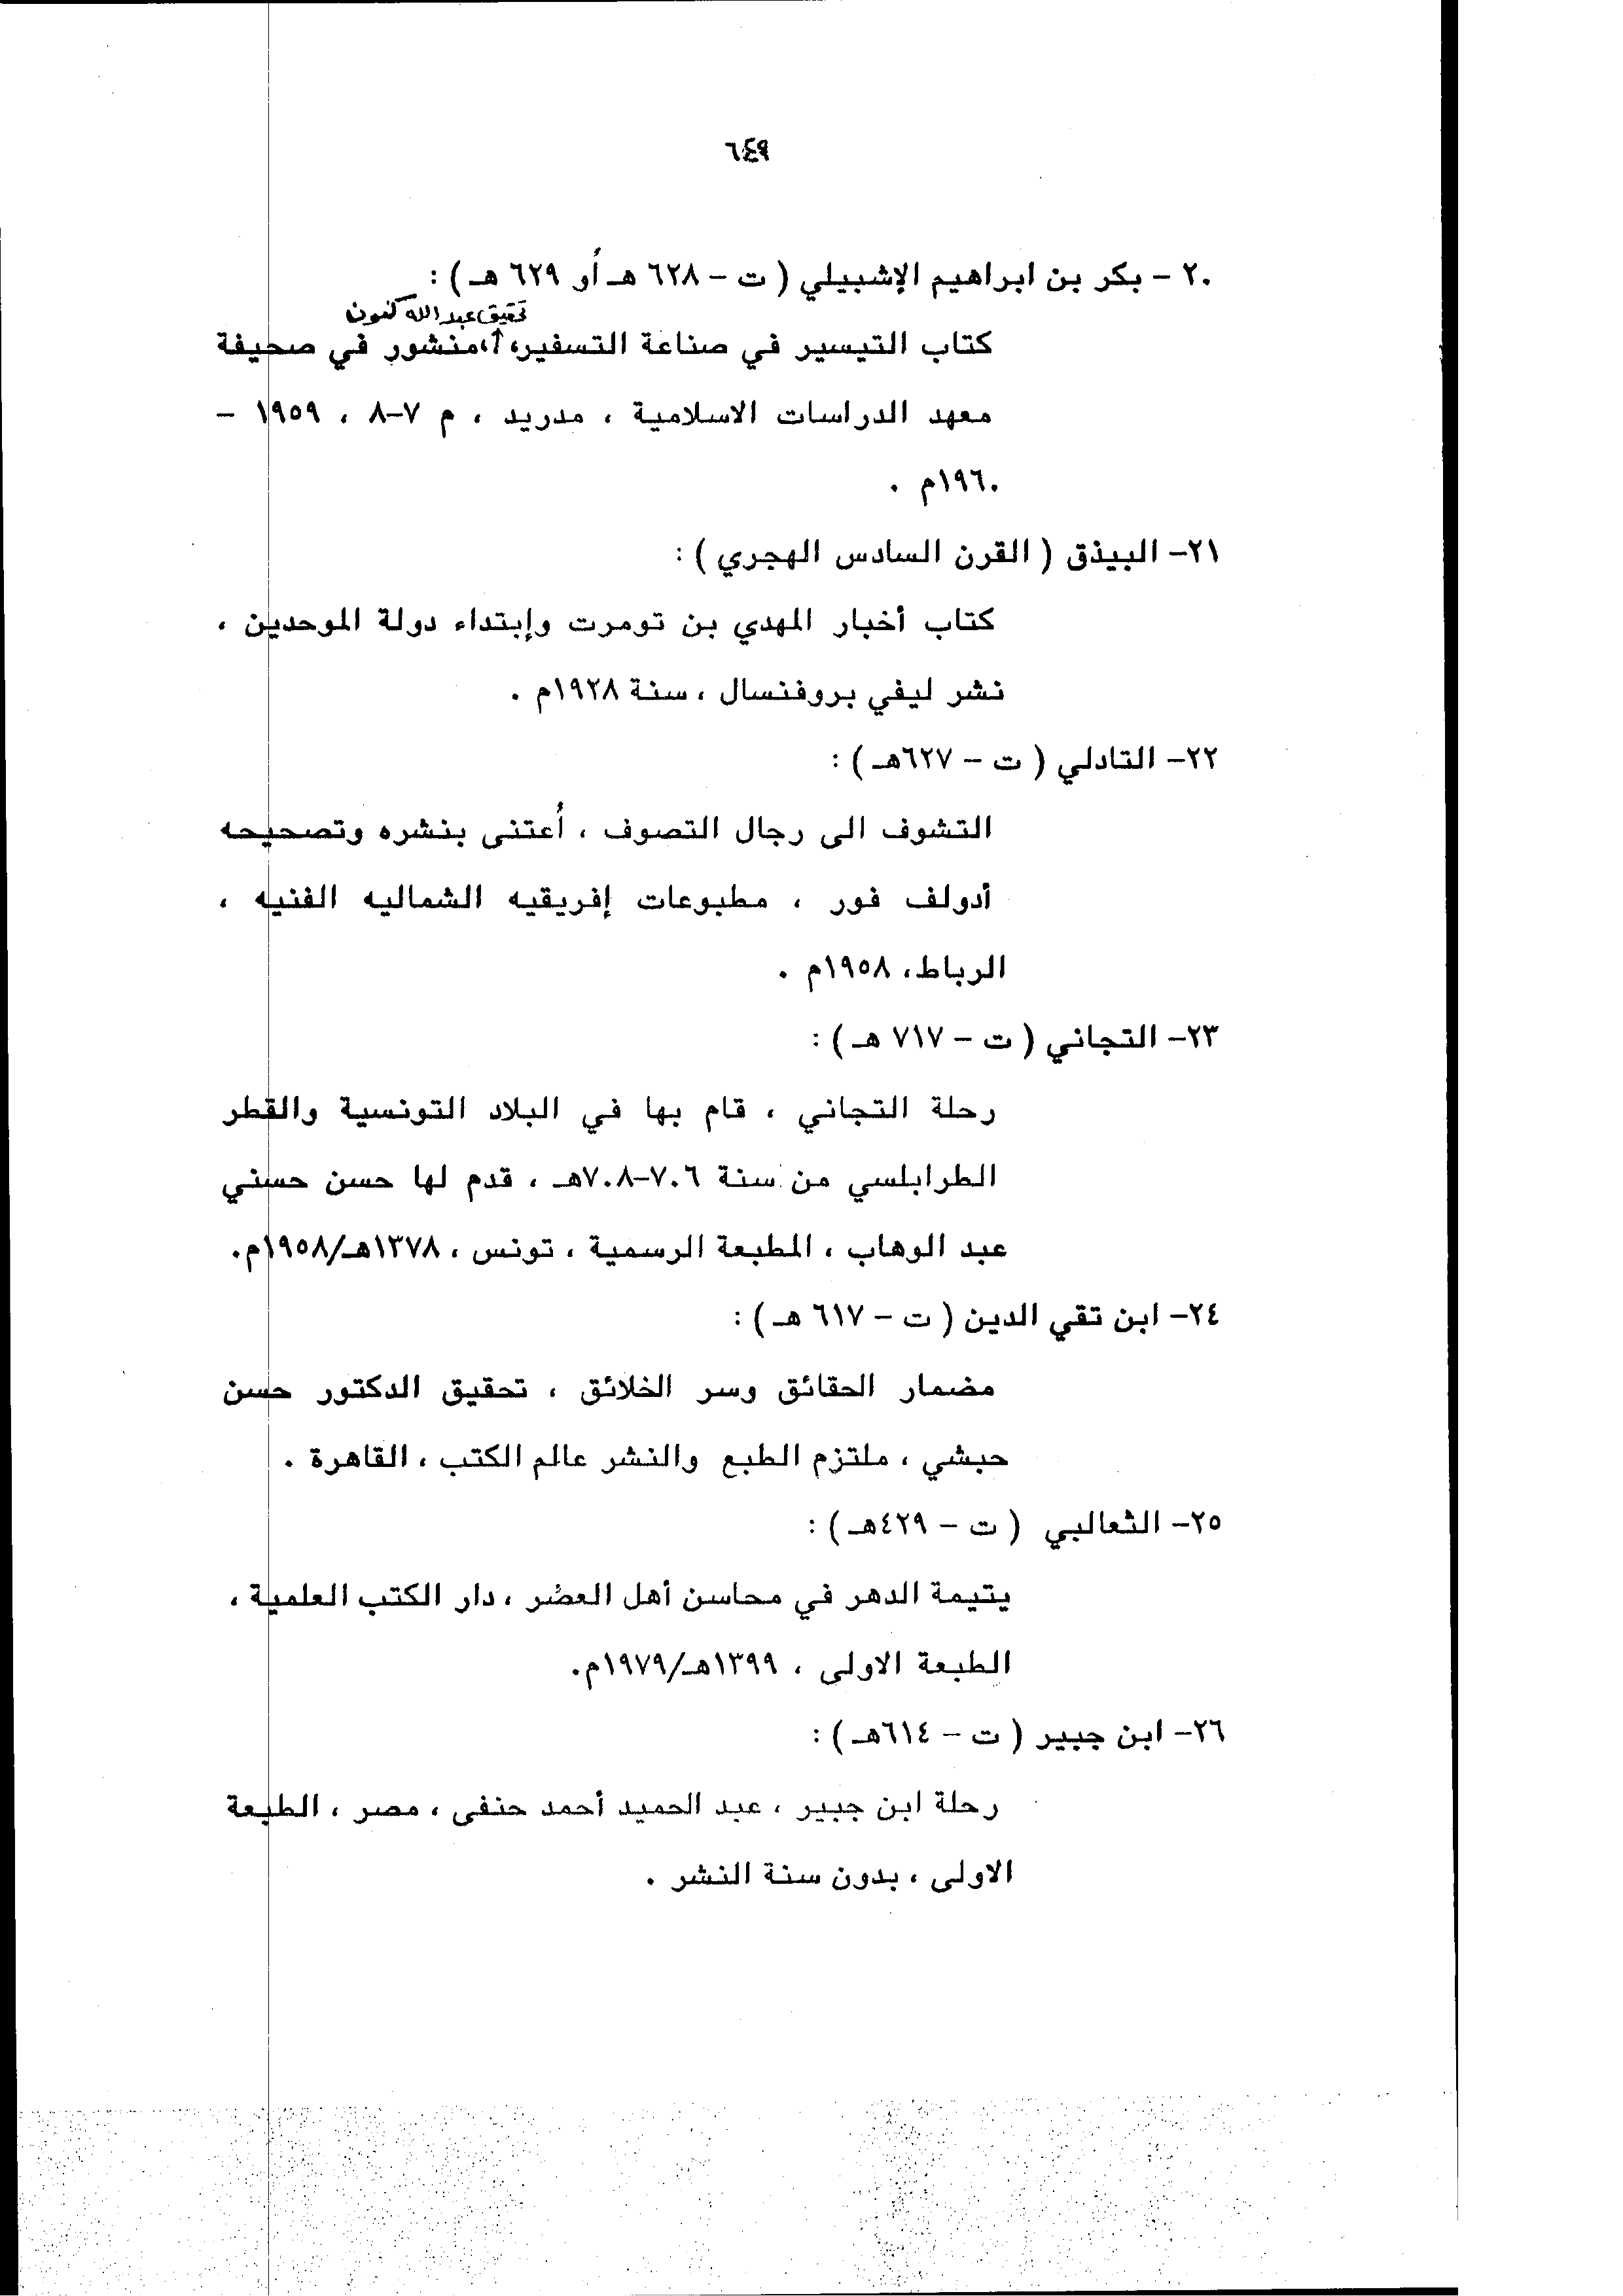 ٦٤٩
٢٠ – بكر بن ابراهيم الإشبيلي ( ت – ٦٢٨ هـ أو ٦٢٩ هـ ) :
تحقيق عبد الله كنون
كتاب التيسير في صناعة التسفير، ، منشور في صحيفة
معهد الدراسات الاسلامية ، مدريد ، م ٧–٨ ، ١٩٥٩ –
١٩٦٠م .
٢١– البيذق ( القرن السادس الهجري ) :
كتاب أخبار المهدي بن تومرت وإبتداء دولة الموحدين ،
نشر ليفي بروفنسال ، سنة ١٩٢٨م .
٢٢– التادلي ( ت – ٦٢٧هـ ) :
التشوف الى رجال التصوف ، أعتنى بنشره وتصحيحه
أدولف فور ، مطبوعات إفريقيه الشماليه الفنيه ،
الرباط، ١٩٥٨م .
٢٣– التجاني ( ت – ٧١٧ هـ ) :
رحلة التجاني ، قام بها في البلاد التونسية والقطر
الطرابلسي من سنة ٧٠٦–٧٠٨هـ ، قدم لها حسن حسني
عبد الوهاب ، المطبعة الرسمية ، تونس ، ١٣٧٨هـ/١٩٥٨م.
٢٤– ابن تقي الدين ( ت – ٦١٧ هـ ) :
مضمار الحقائق وسر الخلائق ، تحقيق الدكتور حسن
حبشي ، ملتزم الطبع والنشر عالم الكتب ، القاهرة .
٢٥– الثعالبي ( ت – ٤٢٩هـ ) :
يتيمة الدهر في محاسن أهل العصر ، دار الكتب العلمية ،
الطبعة الاولى ، ١٣٩٩هـ/١٩٧٩م.
٢٦– ابن جبير ( ت – ٦١٤هـ ) :
رحلة ابن جبير ، عبد الحميد أحمد حنفى ، مصر ، الطبعة
الاولى ، بدون سنة النشر .